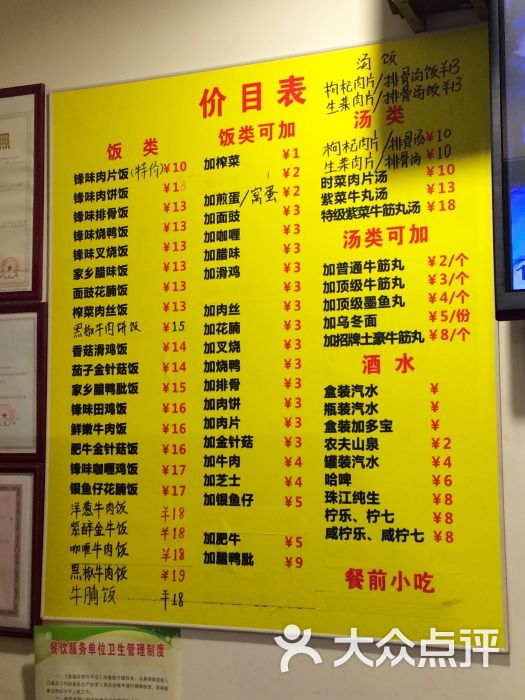 价目表
饭类
锋味肉片饭(特价) ¥10
锋味肉饼饭 ¥13
锋味排骨饭 ¥13
锋味烧鸭饭 ¥13
锋味叉烧饭 ¥13
家乡腊味饭 ¥13
面豉花腩饭 ¥13
榨菜肉丝饭 ¥13
黑椒牛肉饼饭 ¥15
香菇滑鸡饭 ¥14
茄子金针菇饭 ¥14
家乡腊鸭肶饭 ¥15
锋味田鸡饭 ¥16
鲜嫩牛肉饭 ¥16
肥牛金针菇饭 ¥16
锋味咖喱鸡饭 ¥17
银鱼仔花腩饭 ¥17
洋葱牛肉饭 ¥18
紫醉金牛饭 ¥18
咖喱牛肉饭 ¥18
黑椒牛肉饭 ¥19
牛腩饭 ¥18
饭类可加
加榨菜 ¥1
¥2
加煎蛋/窝蛋 ¥2
加面豉 ¥3
加咖喱 ¥3
加腊味 ¥3
加滑鸡 ¥3
¥3
加肉丝 ¥3
加花腩 ¥3
加叉烧 ¥3
加烧鸭 ¥3
加排骨 ¥3
加肉饼 ¥3
加肉片 ¥3
加金针菇 ¥3
加牛肉 ¥4
加芝士 ¥4
加银鱼仔 ¥5
加肥牛 ¥5
加腊鸭肶 ¥9
汤饭
枸杞肉片/排骨汤饭¥13
生菜肉片/排骨汤饭¥13
汤类
枸杞肉片/排骨汤 ¥10
生菜肉片/排骨汤 ¥10
时菜肉片汤 ¥10
紫菜牛丸汤 ¥13
特级紫菜牛筋丸汤 ¥18
汤类可加
加普通牛筋丸 ¥2/个
加顶级牛筋丸 ¥3/个
加顶级墨鱼丸 ¥4/个
加乌冬面 ¥5/份
加招牌土豪牛筋丸 ¥8/个
酒水
盒装汽水 ¥
瓶装汽水 ¥
盒装加多宝 ¥
农夫山泉 ¥2
罐装汽水 ¥4
哈啤 ¥6
珠江纯生 ¥8
柠乐、柠七 ¥8
咸柠乐、咸柠七 ¥8
餐前小吃
餐饮服务单位卫生管理制度
大众点评